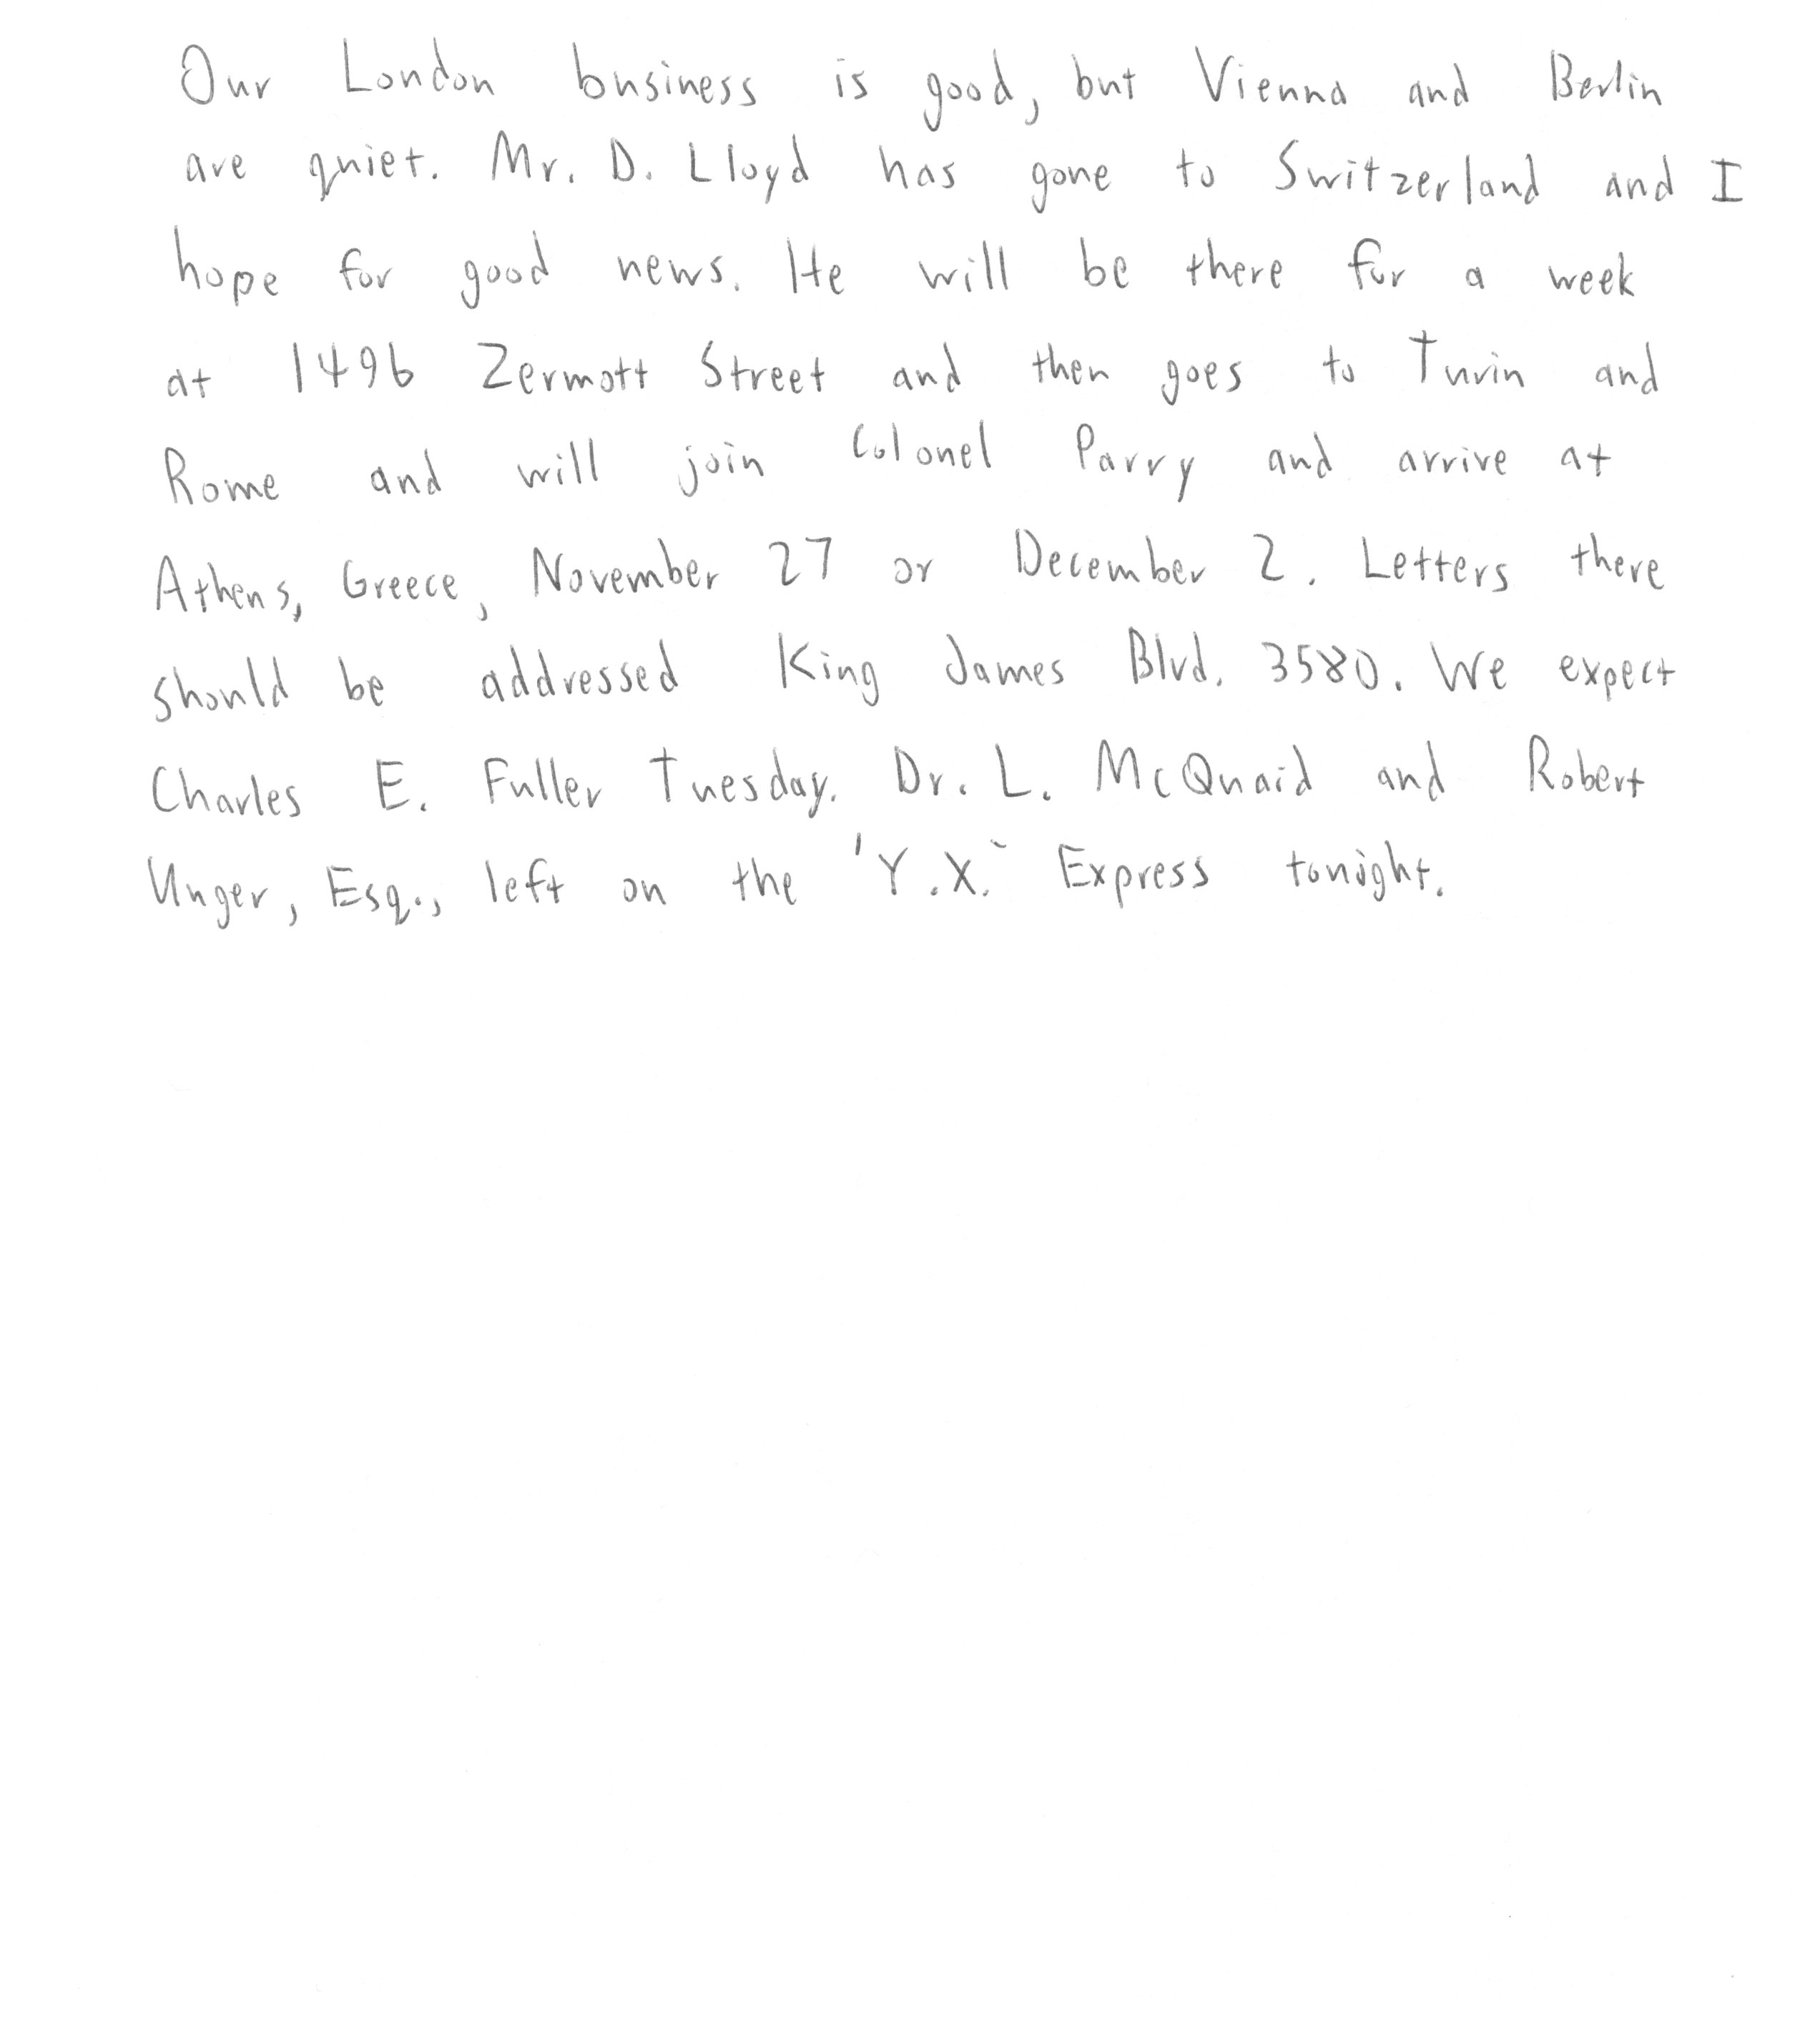 Our London business is good, but Vienna and Berlin
are quiet. Mr. D. Lloyd has gone to Switzerland and I
hope for good news. He will be there for a week
at 1496 Zermott Street and then goes to Turin and
Rome and will join Colonel Parry and arrive at
Athens, Greece, November 27 or December 2. Letters there
should be addressed King James Blvd. 3580. We expect
Charles E. Fuller Tuesday. Dr. L. McQuaid and Robert
Unger, Esq., left on the 'Y.X.` Express tonight.